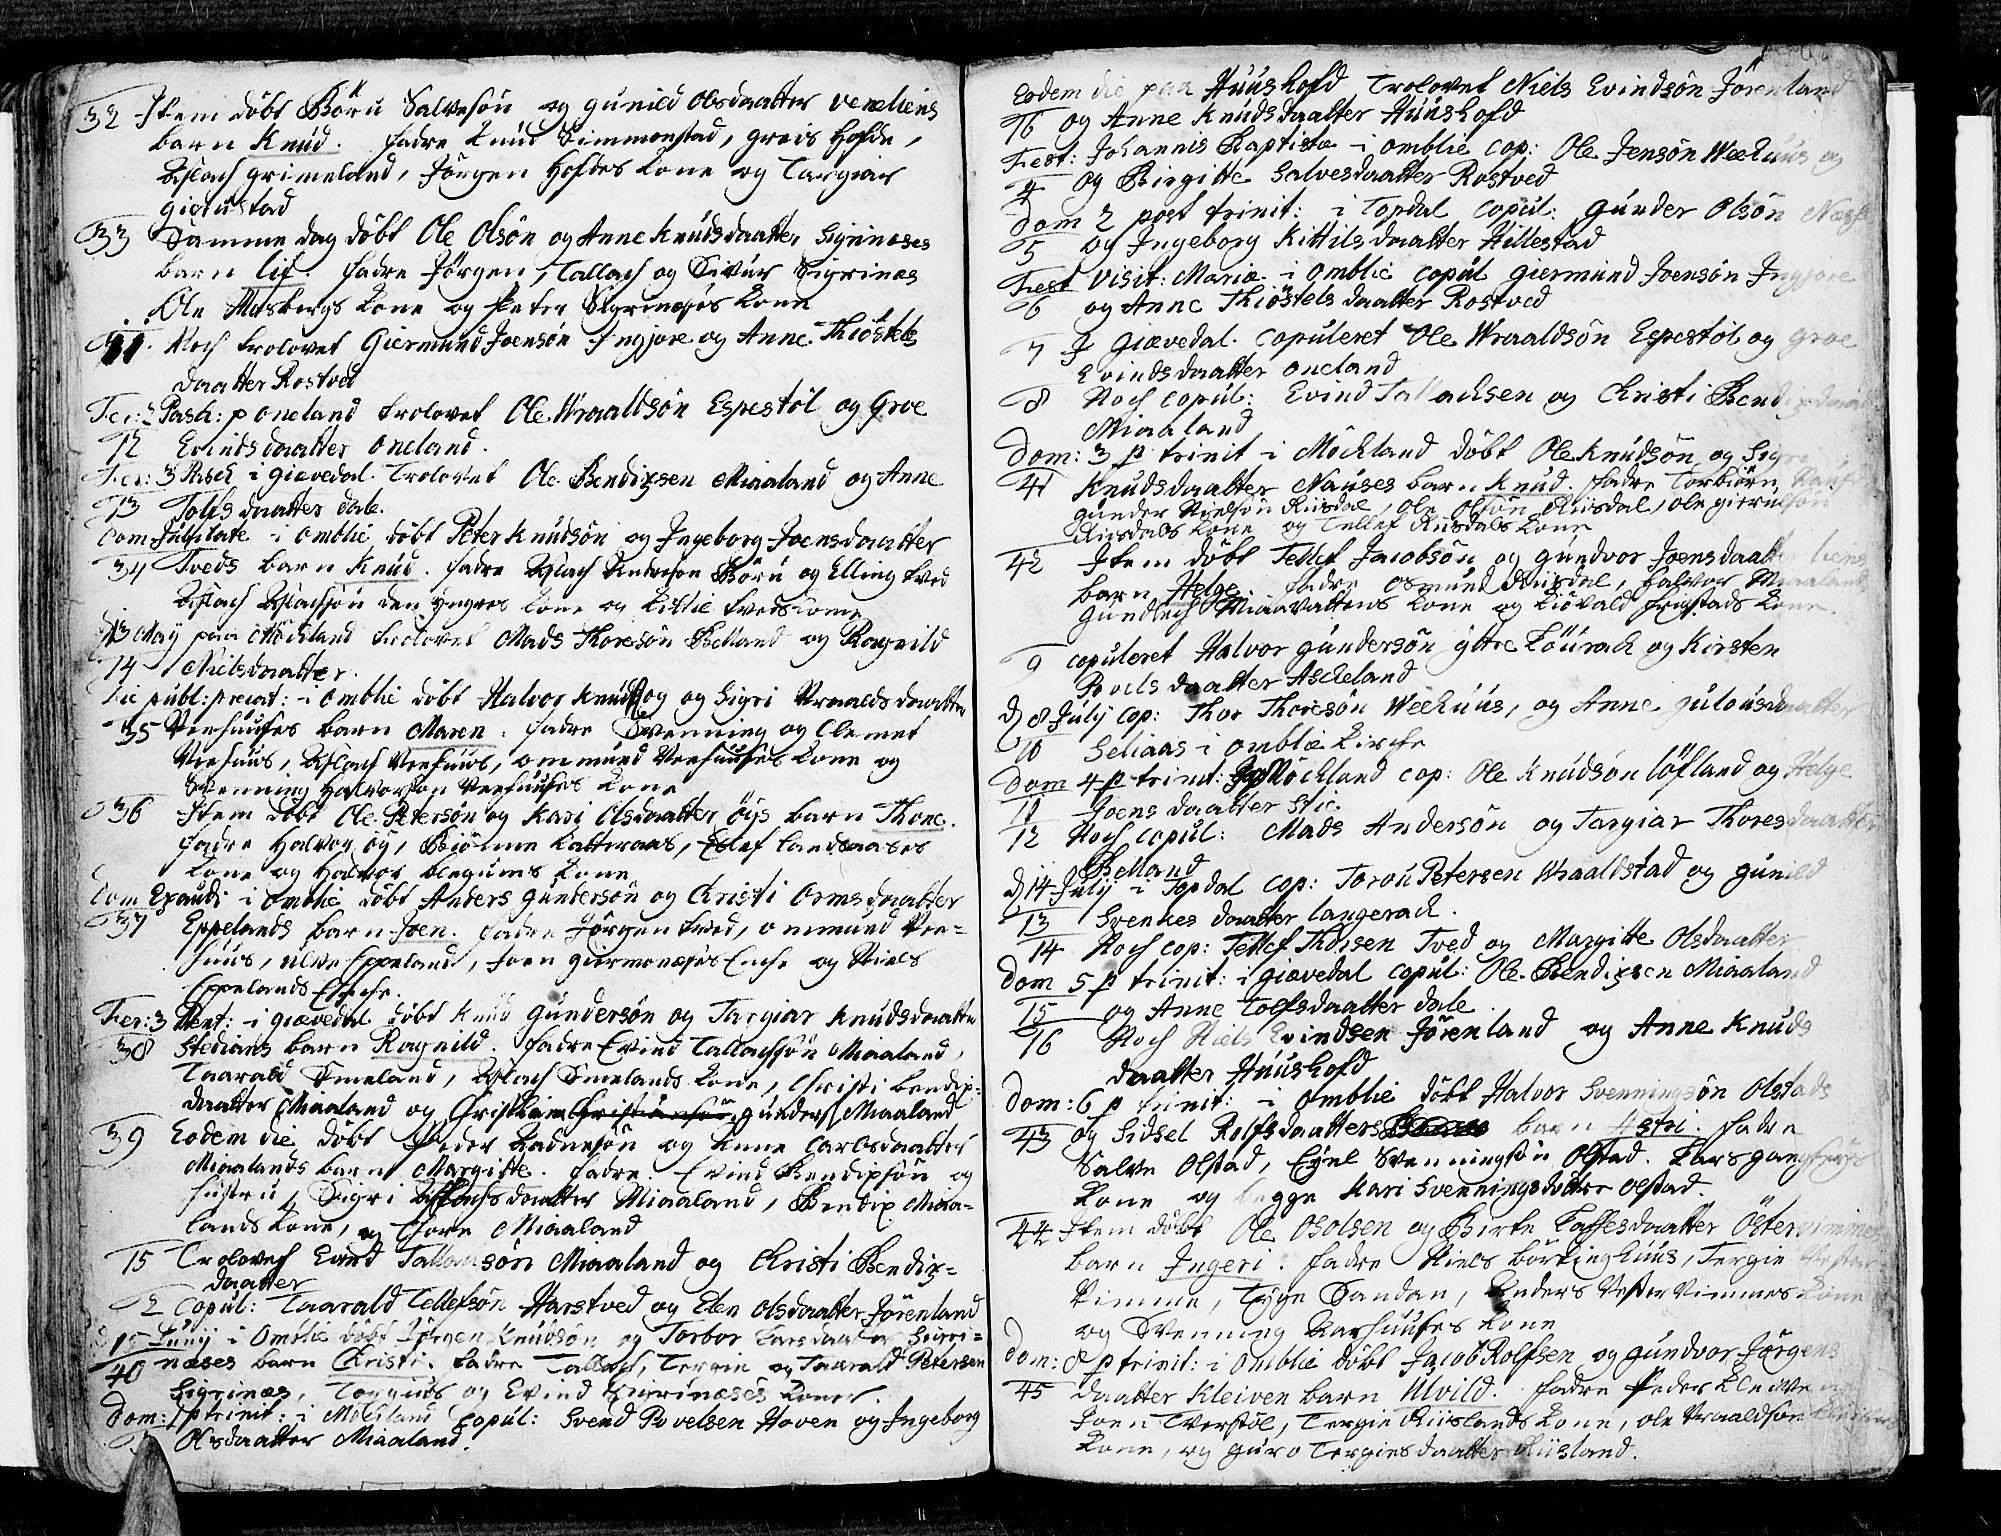 32 Item döbt Böru Salvesön og gunild olsdaatter veneliens
barn Knud. fadre Knud Simmonstad, greis Hofde,
Aslach grimeland, Jörgen Hofdes Kone og Targiær
gierustad
33 Samme dag döbt Ole Olsön og Anne Knudsdaatter Sigrinæses
barn lif. fadre Jörgen, Tallach og Sivur Sigrinæs
Ole Aasbergs Kone og Peter Sigrinæses Kone
11. Noch trolovet Giermund Joensön Ingjore og Anne Thiöstels
daatter Rostved
Fer: 2 Pasch: p oneland trolovet Ole Wraaldsön Espestöl og Groe
12 Evindsdaatter oneland.
Fer: 3 Pasch i giævedal. Trolovet Ole Bendixsen Miaaland og Anne
13 Tolfsdaatter dale.
Dom Jubilate i omblie döbt Peter Knudsön og Ingeborg Joensdaatter
34 Tveds barn Knud. fadre Aslach Böru og Elling tved
Aslach Aslachsön den yngres Kone og Kittil tveds Kone
d 13 Maÿ paa Möckland trolovet Mads Thoresön Belland og Ragnild
14 Nielsdaatter.
Die publ: precat: i omblie döbt Halvor Knuds og og Sigri Vraaldsdaatter
35 Veehuuses barn Maren. fadre Svenning og Clemet
Veehuus, Aslach Veehuus, ommund Veehuuses Kone og
Svenning Halvorsön Veehuuses Kone
36 Item döbt Ole Petersön og Kari Olsdaatter öys barn Thone.
fadre Halvor öy, Biönne Katteraas, Ellef landsaases
Kone og Halvor blegums Kone
Dom Exaudi i omblie döbt Anders Gundersön og Christi Ormsdaatter
37 Eppelands barn Joen. fadre Jörgen tved, ommund Vee=
huus, ulve Eppeland, Joen giermonæses Enche og Niels
Eppelands Enche.
Fer: 3 Pent: i giævedal döbt Knud Gundersön og Targiær Knudsdaatter
38 Stedians barn Ragnild. fadre Evind Tallachsön Miaaland,
Taarald Smeland, Aslach Smelands Kone, Christi bendix=
daatter Miaaland og Christian gunders Miaaland
39 Eodem die döbt Peder og Anne Carlsdaatter
Miaalands barn Margitte. fadre. Evind Bendixsön og
hustru, Sigri Aslachsdaatter Miaaland, Bendix Miaa=
lands Kone, og Thore Miaaland
15 Trolovet Evind Tallachsön Miaaland og Christi Bendix=
daatter
2 Copul: Taarald Tellefsön Harstved og Elen Olsdaatter Jörenland
d 15 Junij i Omblie döbt Jörgen Knudsön og Torbor Larsdaatter Sigri=
40 næses barn Christi. fadre Tallach, Tergie og Taarald Petersen
Sigrinæs, Torgius og Evind Sigrinæses Koner.
Dom: 1 p trinit: i Möckland Copul: Svend Povelsen Hoven og Ingeborg
Olsdaatter Miaaland.
Eodem die paa Huushofd Trolovet Niels Evindsön Jörenland
16 og Anne Knudsdaatter Huushofd
Fest: Johannis Baptistæ i omblie cop: Ole Jensön Weehuus og
4 og Birgitte Salvesdaatter Rostved
Dom 2 post trinit: i Topdal Copul: Gunder Olsön
5 og Ingeborg Kittilsdaatter Hillestad
Fest Visit: Mariæ i omblie copul Giermund Joensön Ingjore
6 og Anne Thiöstelsdaatter Rostved
7 I Giævedal. copuleret Ole Wraaldsön Espestöl og Groe
Evindsdaatter oneland
8 Noch copul: Evind Tallachsen og Christi Bendixdaatter
Miaaland
Dom: 3 p trinit i Möckland döbt Ole Knudsön og Sigri
41 Knudsdaatter Nauses barn Knud. fadre Torbiörn
Gunder Nielsön Riisdal, Ole Olsön Riisdal, Ole gierulsön
Riisdals Kone og Tellef Riisdals Kone
42 Item döbt Tellef Jacobsön og Gundvor Joensdaatter liens
barn Helge. fadre Osmund Riisdal, Halvor Miaaland,
Gunlech Miaavattens Kone og Kiövald Frigstads Kone.
9 Copuleret Halvor Gundersön yttre Löurach og Kirsten
Povelsdaatter Ascheland
d 8 July cop: Thor Thoresön Weehuus, og Anne Gulousdaatter
10 Seliaas i omblie Kirche
Dom 4 p trinit: i Möckland cop: Ole Knudsön löfland og Helge
11 Joensdaatter Stie.
12 Noch copul: Mads Andersön og Targiær Thoresdaatter
Belland
d 14 July i Topdal cop: Torou Petersen Wraalstad og gunild
13 Svenkesdaatter langerach.
14 Noch cop: Tellef Thorsen Tved og Margitte Olsdaatter
Dom 5 p trinit: i giævedal copul: Ole Bendixsen Miaaland
15 og Anne Tolfsdaatter dale
16 Noch Niels Evindsen Jörenland og Anne Knuds
daatter Huushofd
Dom: 6 p trinit: i Omblie döbt Halvor Svenningsön Olstads
43 og Sidsel Rolfsdaatters barn Astri. fadre
Salve Olstad, Eyel Svenningsön Olstad. Lars
Kone og begge Kari Svenningsdötre olstad.
44 Item döbt Ole Osolsen og Birte Taffesdaatter Östervimmes
barn Ingeri. fadre Niels börkinghuus, Tergie Vester
Vimme, Tyge Sandan, Anders Vestervimmes Kone
og Svenning Aarhuuses Kone
Dom: 8 p trinit: i omblie döbt Jacob Rolfsen og Gundvor Jörgens
45 daatter Kleiven barn Ulvild. fadre Peder Kleiven
Joen Tverstöl, Tergie Riislands Kone, ole Vraaldsön
Kone, og guro Tergiesdaatter Riisland.